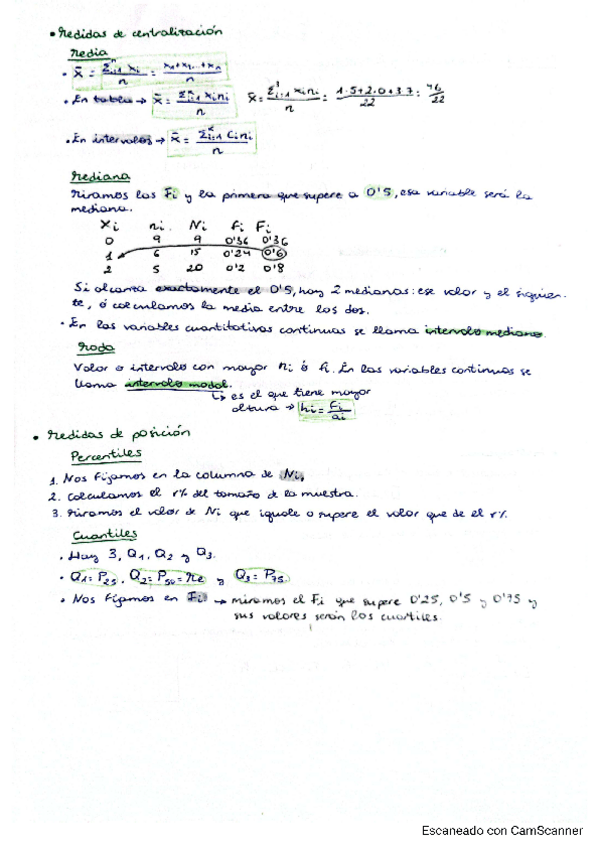 • Medidas de centralización
Media
• x̄ = Σⁿᵢ₌₁ xᵢ / n = x₁+x₂...+xₙ / n
• En tabla → x̄ = Σⁿᵢ₌₁ xᵢnᵢ / n   x̄ = Σ³ᵢ₌₁ xᵢnᵢ / n = 1·5+2·0+3·7 / 22 = 46/22
• En intervalos → x̄ = Σⁿᵢ₌₁ cᵢnᵢ / n
Mediana
Miramos las Fi y la primera que supere a 0'5, esa variable será la
mediana.
Xi ni Ni fi Fi
0 9 9 0'36 0'36
1 6 15 0'24 0'6
2 5 20 0'2 0'8
Si alcanza exactamente el 0'5, hay 2 medianas: ese valor y el siguien-
te, ó calculamos la media entre los dos.
• En las variables cuantitativas continuas se llama intervalo mediano.
Moda
Valor o intervalo con mayor ni ó fi. En las variables continuas se
llama intervalo modal.
↳ es el que tiene mayor
altura → hi = Fi / ai
• Medidas de posición
Percentiles
1. Nos fijamos en la columna de Ni.
2. Calculamos el r% del tamaño de la muestra.
3. Miramos el valor de Ni que iguale o supere el valor que de el r%.
Cuantiles
• Hay 3, Q1, Q2 y Q3.
• Q1 = P25, Q2 = P50 = Me y Q3 = P75
• Nos fijamos en Fi → miramos el Fi que supere 0'25, 0'5 y 0'75 y
sus valores serán los cuartiles.
Escaneado con CamScanner